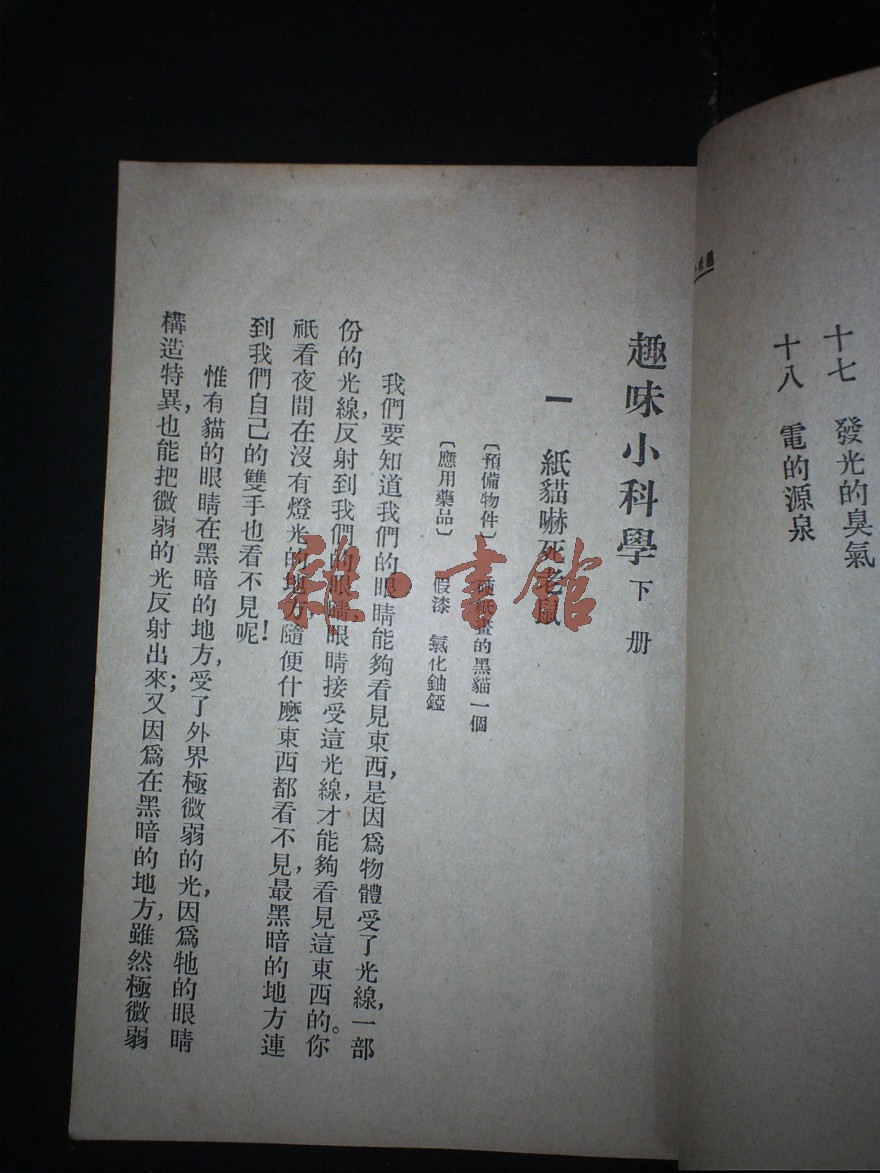 十七 發光的臭氣
十八 電的源泉
趣味小科學 下册
一 紙貓嚇死老鼠
〔預備物件〕 硬紙畫的黑貓一個
〔應用藥品〕 假漆 氯化鈾錏
我們要知道我們的眼睛能夠看見東西，是因爲物體受了光線，一部
份的光線，反射到我們的眼睛，眼睛接受這光線，才能夠看見這東西的。你
祇看夜間在沒有燈光的地方，隨便什麽東西都看不見，最黑暗的地方連
到我們自己的雙手也看不見呢！
惟有貓的眼睛在黑暗的地方，受了外界極微弱的光，因爲牠的眼睛
構造特異，也能把微弱的光反射出來；又因爲在黑暗的地方，雖然極微弱
雜·書館